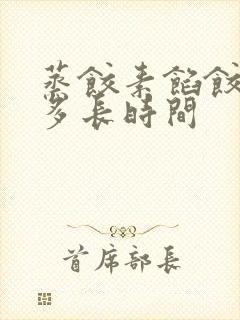 蒸餃素餡餃
多長時間
首席部長